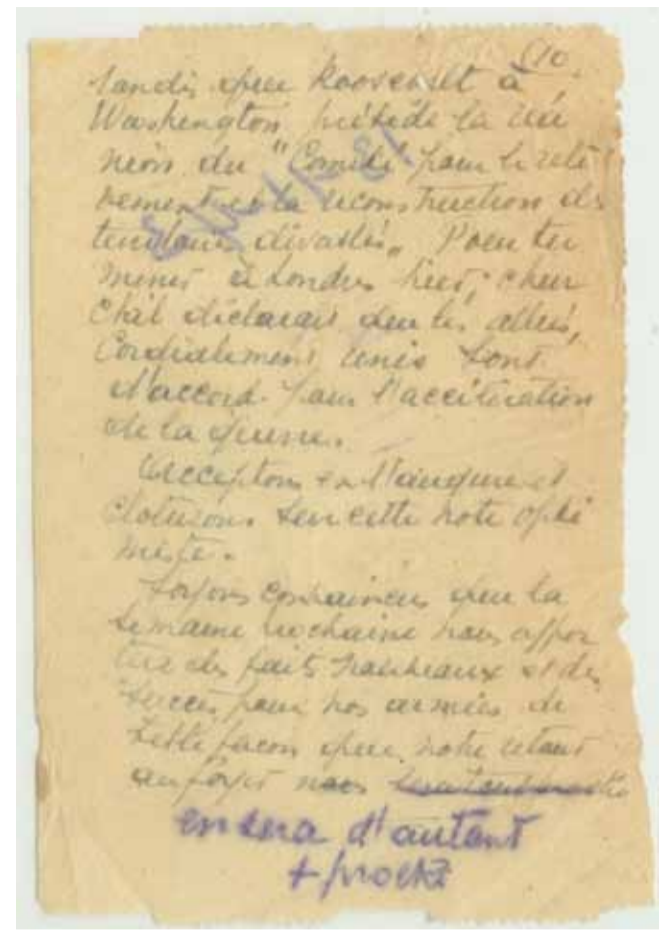 (10.
tandis que Roosevelt à
Washington préside la réu
nion du "Comité pour le relè
vement et la reconstruction des
territoires dévastés„ Pour ter
miner à Londres hier, Chur
chil déclarait que les alliés,
Cordialement unis sont
d'accord pour l'accélération
de la guerre.
Acceptons en l'augure et
cloturons sur cette note opti
miste.
Soyons convaincus que la
semaine prochaine nous appor
tera des faits nouveaux et des
succès pour nos armées de
telle façon que notre retour
au foyer nous
en sera d'autant
+ proche